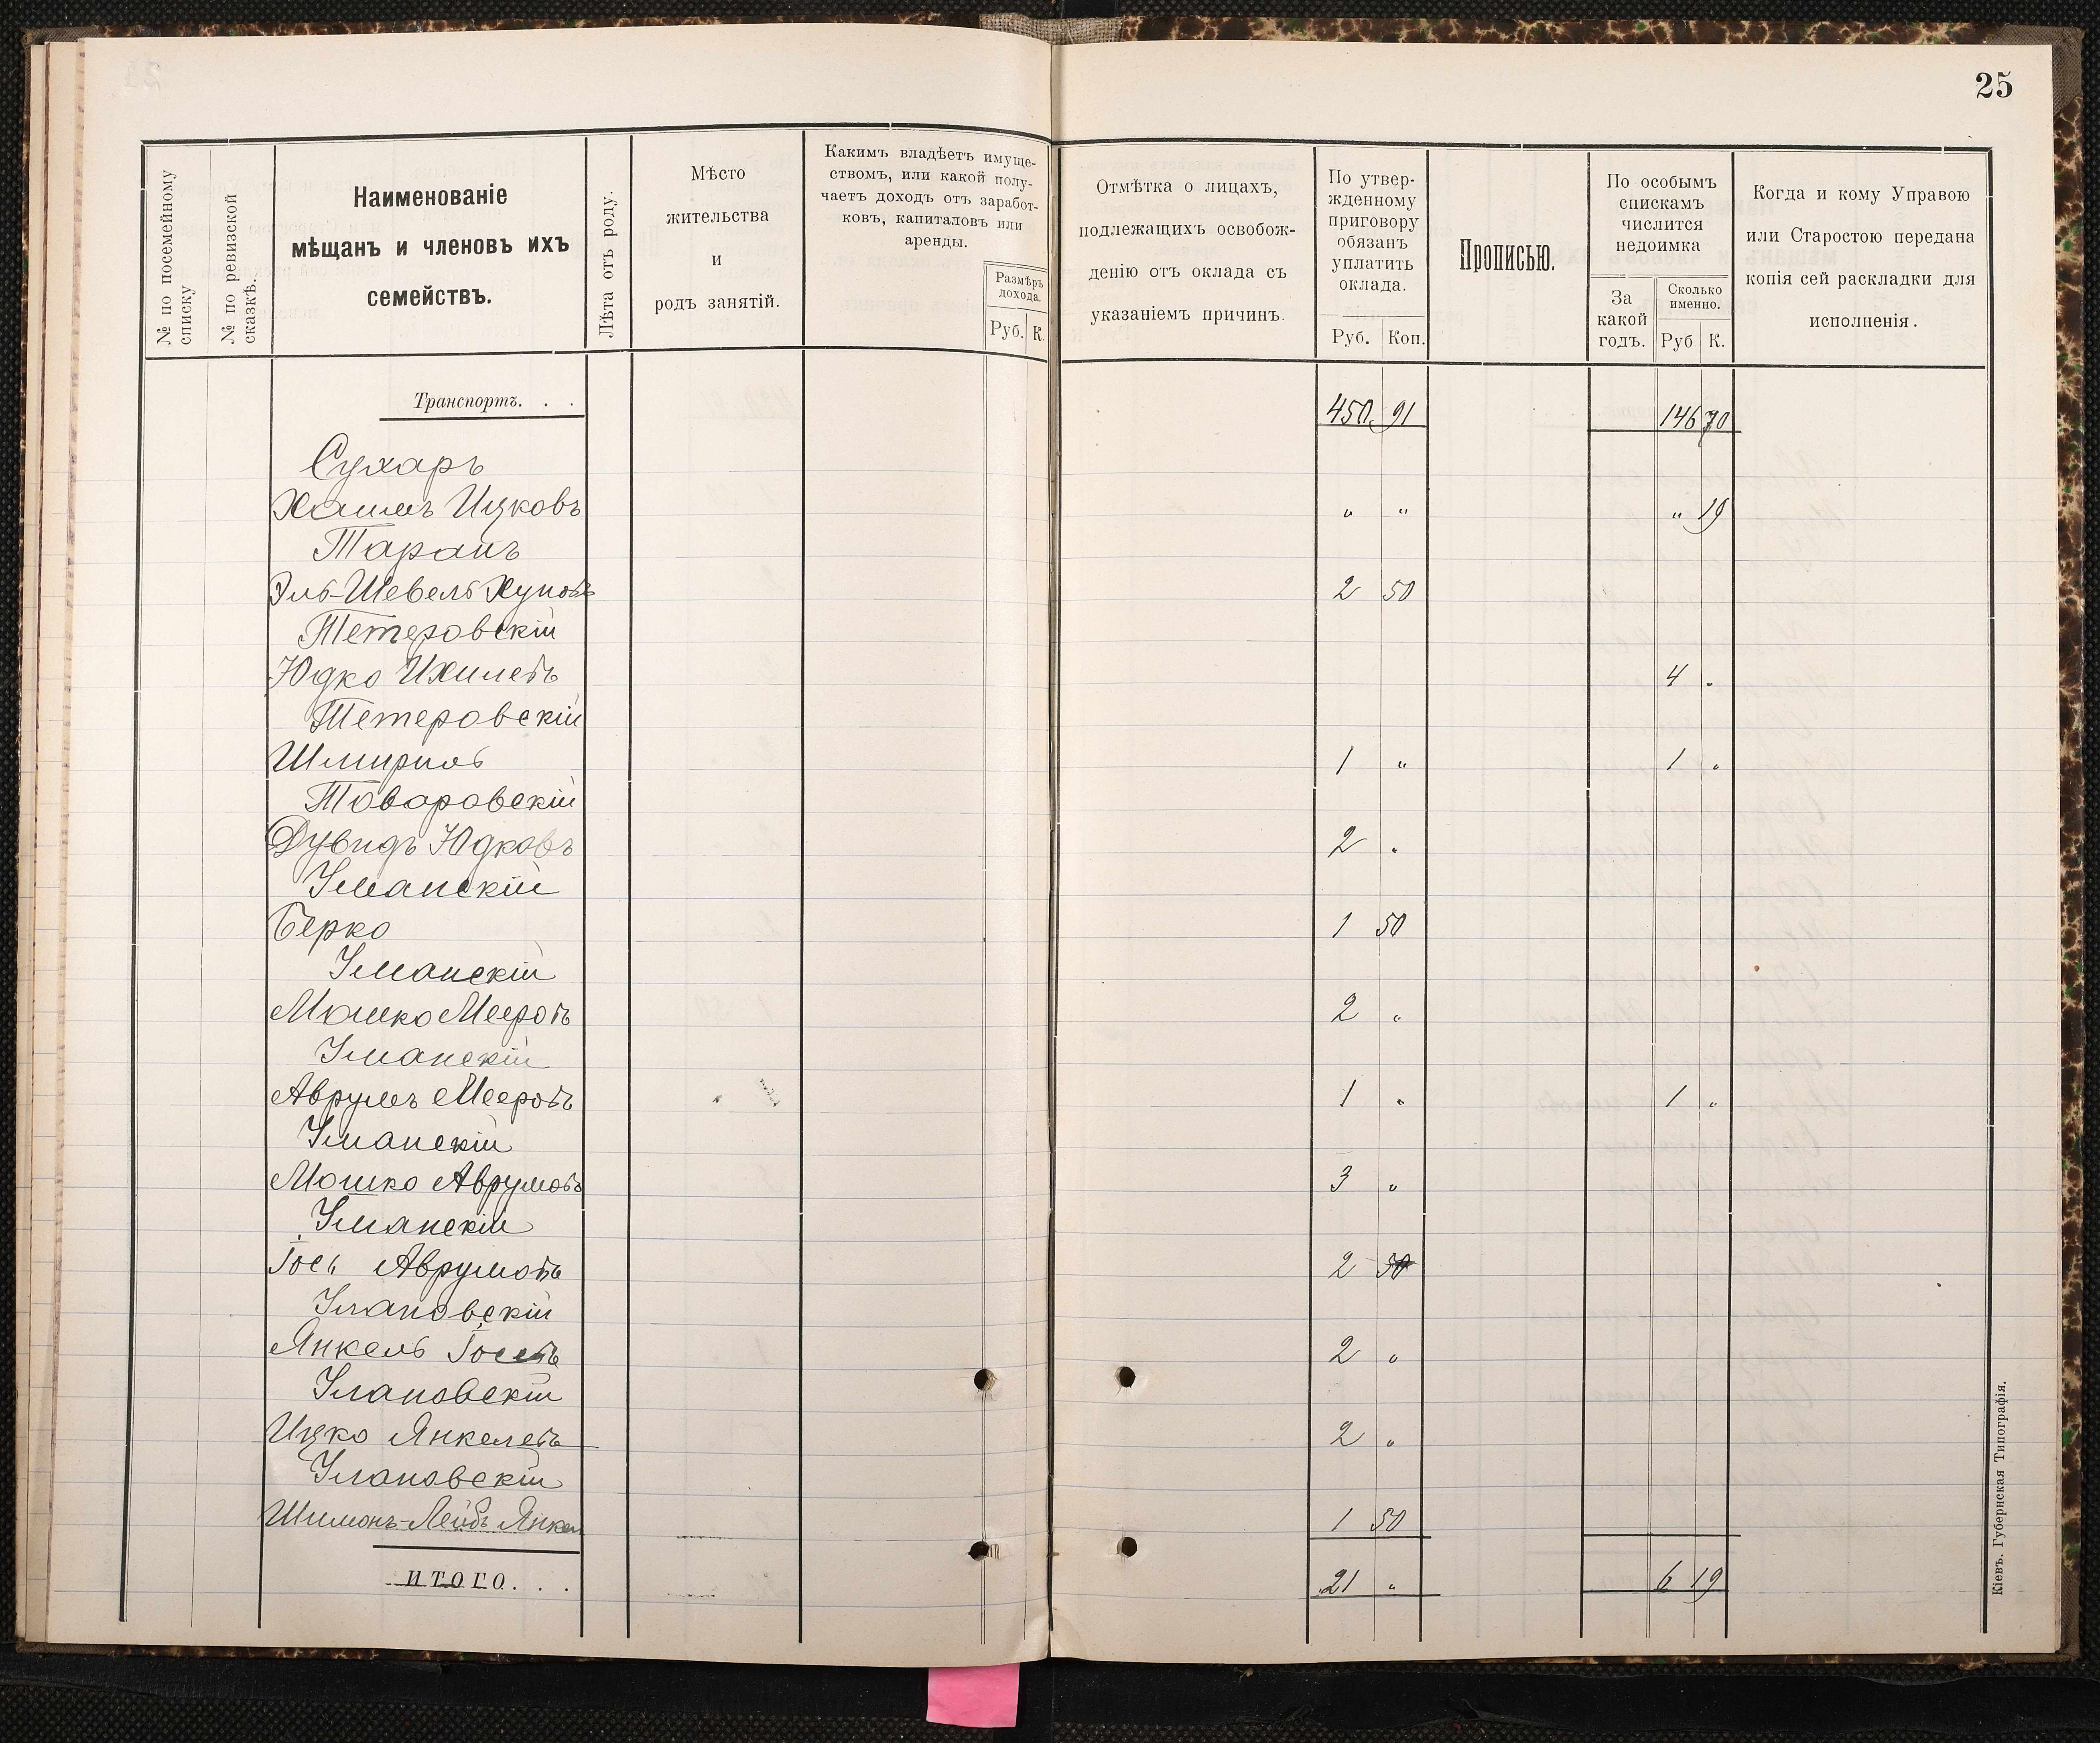 25
№ по посемейному списку
№ по ревизской сказкѣ.
Наименованіе
мѣщанъ и членовъ ихъ
семействъ.
Лѣта отъ роду.
Мѣсто
жительства
и
родъ занятій.
Какимъ владѣетъ имуще-
ствомъ, или какой полу-
чаетъ доходъ отъ заработ-
ковъ, капиталовъ или
аренды.
Размѣръ
дохода.
Руб. К.
Отмѣтка о лицахъ,
подлежащихъ освобож-
денію отъ оклада съ
указаніемъ причинъ.
По утвер-
жденному
приговору
обязанъ
уплатить
оклада.
Руб. Коп.
Прописью.
По особымъ
спискамъ
числится
недоимка
За
какой
годъ.
Сколько
именно.
Руб К.
Когда и кому Управою
или Старостою передана
копія сей раскладки для
исполненія.
Транспортъ. . . 450 91 146 70
Сухаръ
Хаимъ Ицковъ " " " 19
Таранъ
Эль-Шевель Хуновъ 2 50
Тетеровскій
Юдко Ихилевъ 4 "
Тетеровскій
Шмириль 1 " 1 "
Товаровскій
Дувидъ Юдковъ 2 "
Уманскій
Берко 1 50
Уманскій
Мошко Мееровъ 2 "
Уманскій
Аврумъ Мееровъ 1 " 1 "
Уманскій
Мошко Аврумовъ 3 "
Уманскій
Іось Аврумовъ 2 50
Улановскій
Янкель Іосевъ 2 "
Улановскій
Ицко Янкелевъ 2 "
Улановскій
Шимонъ-Лейбъ Янкел 1 50
ИТОГО. . . 21 " 6 19
Кіевъ. Губернская Типографія.